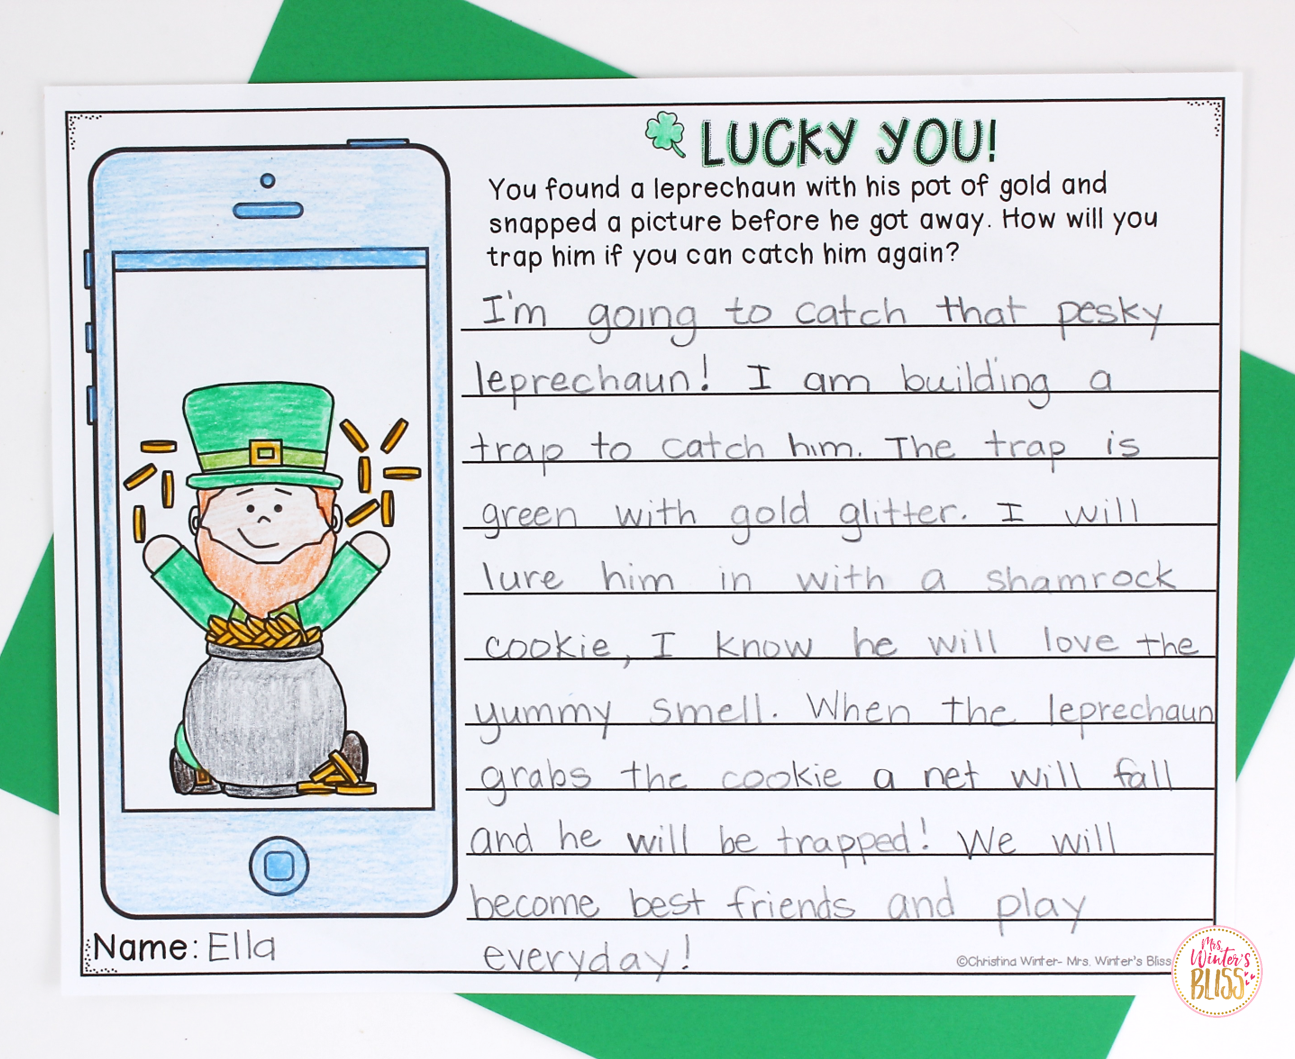 LUCKY YOU!
You found a leprechaun with his pot of gold and
snapped a picture before he got away. How will you
trap him if you can catch him again?
I'm going to catch that pesky
leprechaun! I am building a
trap to catch him. The trap is
green with gold glitter. I will
lure him in with a shamrock
cookie, I know he will love the
yummy smell. When the leprechaun
grabs the cookie a net will fall
and he will be trapped! We will
become best friends and play
everyday!
Name: Ella
©Christina Winter- Mrs. Winter's Bliss
Mrs.
Winter's
BLISS